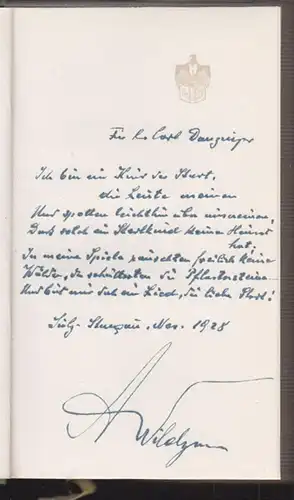 Für Carl Danziger
Ich bin ein Kind der Stadt,
die Leute meinen
Und spotten leichthin über unsereinen,
Daß solch ein Stadtkind keine Heimat
hat.
In meine Spiele rauschten freilich keine
Wälder, da schütterten die Pflastersteine
Und bist mir doch ein Lied, du liebe Stadt!
Nov. 1928
A Wildgans